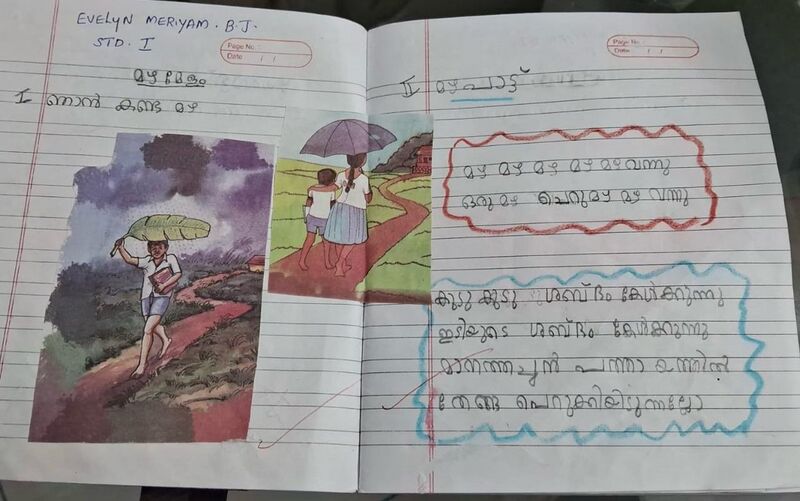 EVELYN MERIYAM. B.J.
STD. I
Page No.
Date / /
മഴമേളം
I ഞാൻ കണ്ട മഴ
Page No.
Date / /
II മഴപാട്ട്
മഴ മഴ മഴ മഴ മഴവന്നു
ഒരു മഴ ചെറുമഴ മഴ വന്നു
കുടു കുടു ശബ്ദം കേൾക്കുന്നു
ഇടിയുടെ ശബ്ദം കേൾക്കുന്നു
മാനത്തച്ചൻ
തേങ്ങ പെറുക്കിയിടുന്നല്ലോ